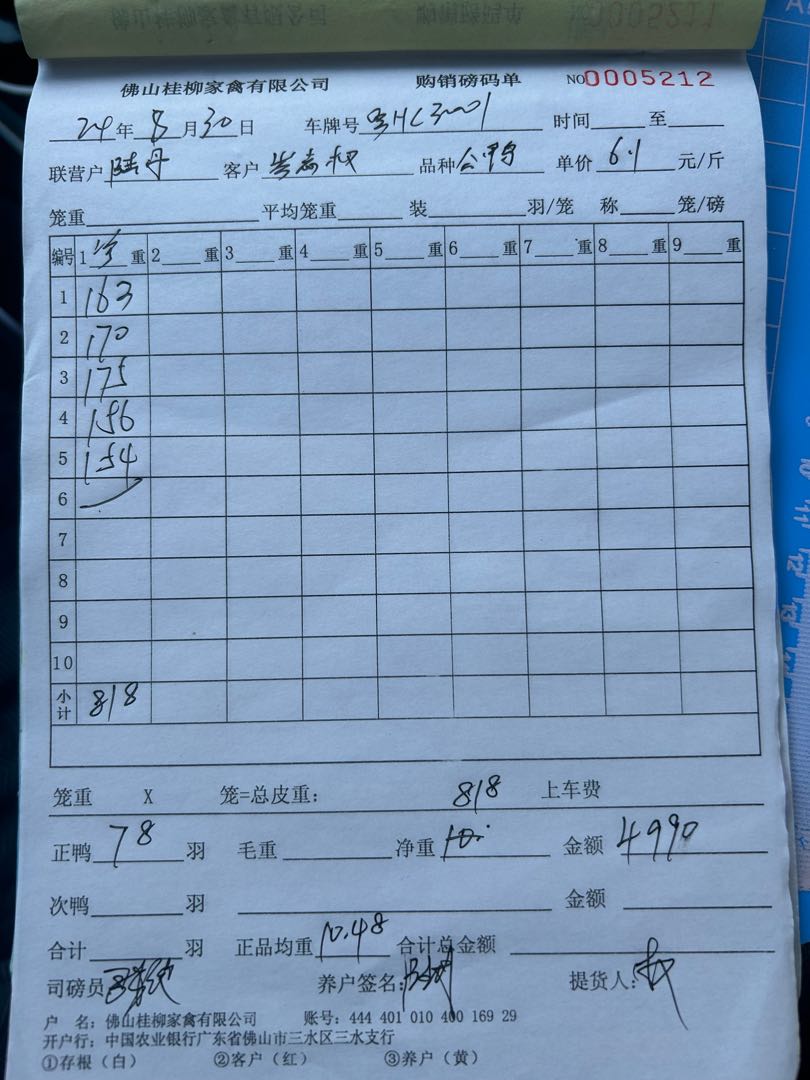 佛山桂柳家禽有限公司 购销磅码单 NO0005212
24年8月30日 车牌号 HC3001 时间 至
联营户 陆丹 客户 志权 品种 公鸭 单价 6.1 元/斤
笼重 平均笼重 装 羽/笼 称 笼/磅
编号 1 重 2 重 3 重 4 重 5 重 6 重 7 重 8 重 9 重
1 163
2 170
3 175
4 156
5 154
6
7
8
9
10
小计 818
笼重 X 笼=总皮重: 818 上车费
正鸭 78 羽 毛重 净重 10. 金额 4990
次鸭 羽 金额
合计 羽 正品均重 10.48 合计总金额
司磅员 养户签名: 提货人: 权
户 名: 佛山桂柳家禽有限公司 账号: 444 401 010 400 169 29
开户行: 中国农业银行广东省佛山市三水区三水支行
①存根（白） ②客户（红） ③养户（黄）